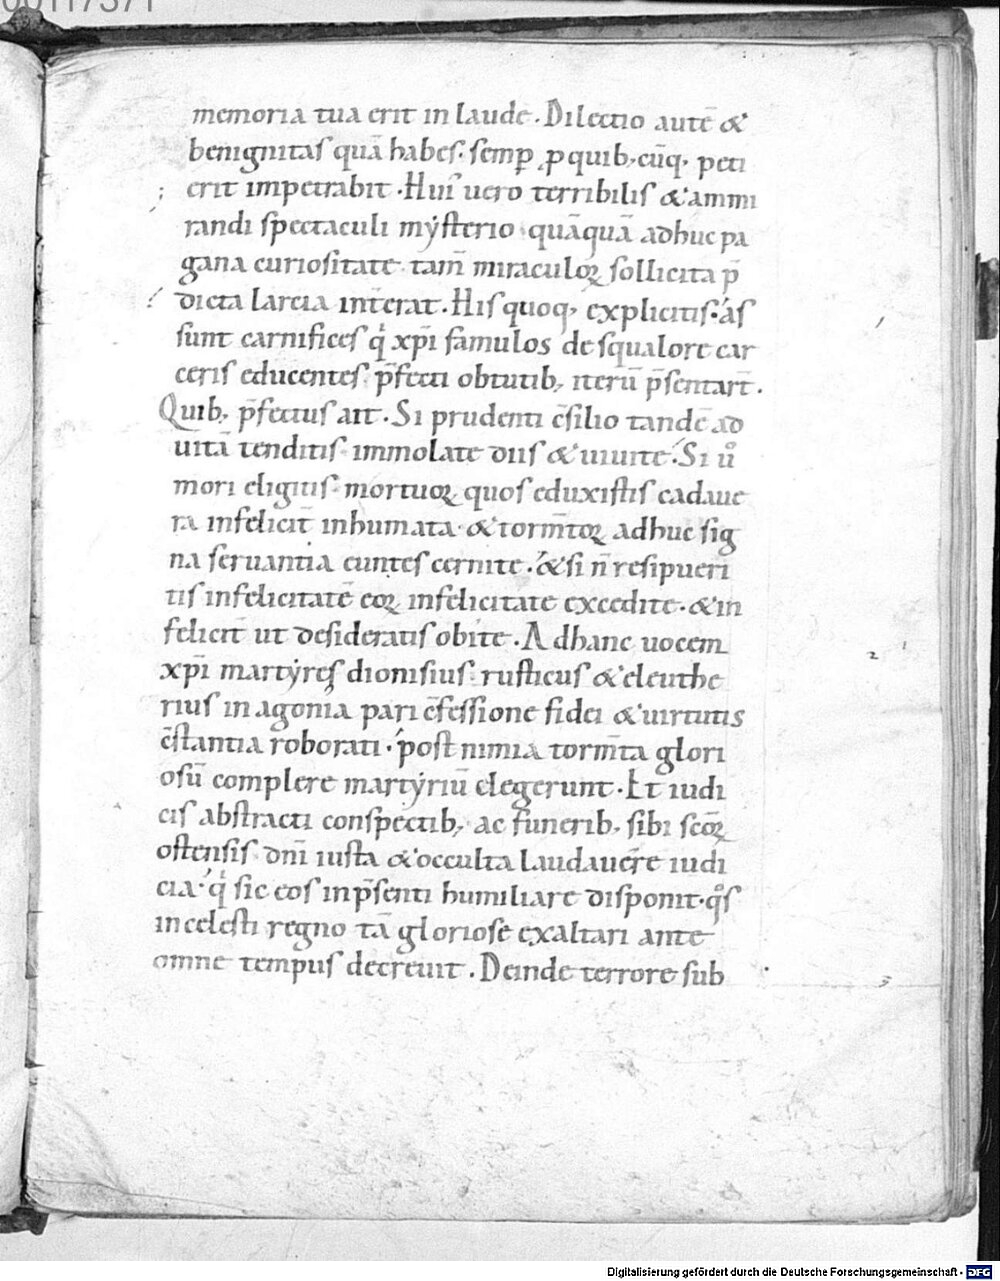 memoria tua erit in laude. Dilectio autē &
benignitas quā habes. semp̱ ꝓ quib; cūq; peti
erit impetrabit. Hui᷒ uero terribilis & ammi
randi spectaculi mẏsterio quāquā adhuc pa
gana curiositate tam̄ miraculoꝝ sollicita p̄
dicta larcia int̄erat. His quoq; explicitis. ás
sunt carnifices qͥ xp̄i famulos de squalore car
ceris educentes p̄fecti obtutib; iterū p̄sentart̄.
Quib; p̄fectus ait. Si prudenti c̄silio tandē ad
uitā tenditis immolate diis & uiuite. Si ū̊
mori eligitis mortuoꝝ quos eduxistis cadaue
ra infelicit̄ inhumata & torm̄toꝝ adhuc sig
na seruantia euntes cernite. & si n̄ resipueri
tis infelicitatē eoꝝ infelicitate excedite. & in
felicit̄ ut desideratis obite. Ad hanc uocem
xp̄i martẏres dionisius rusticus & eleuthe
rius in agonia pari c̄fessione fidei & uirtutis
c̄stantia roborati. post nimia torm̄ta glori
osū complere martẏriū elegerunt. Et iudi
cis abstracti conspectib; ac funerib; sibi sc̄oꝝ
ostensis dn̄i iusta & occulta laudauēre iudi
cia. qͥ sic eos in p̄senti humiliare disponit. qͦs
in celesti regno tā gloriose exaltari ante
omne tempus decreuit. Deinde terrore sub
Digitalisierung gefördert durch die Deutsche Forschungsgemeinschaft - DFG